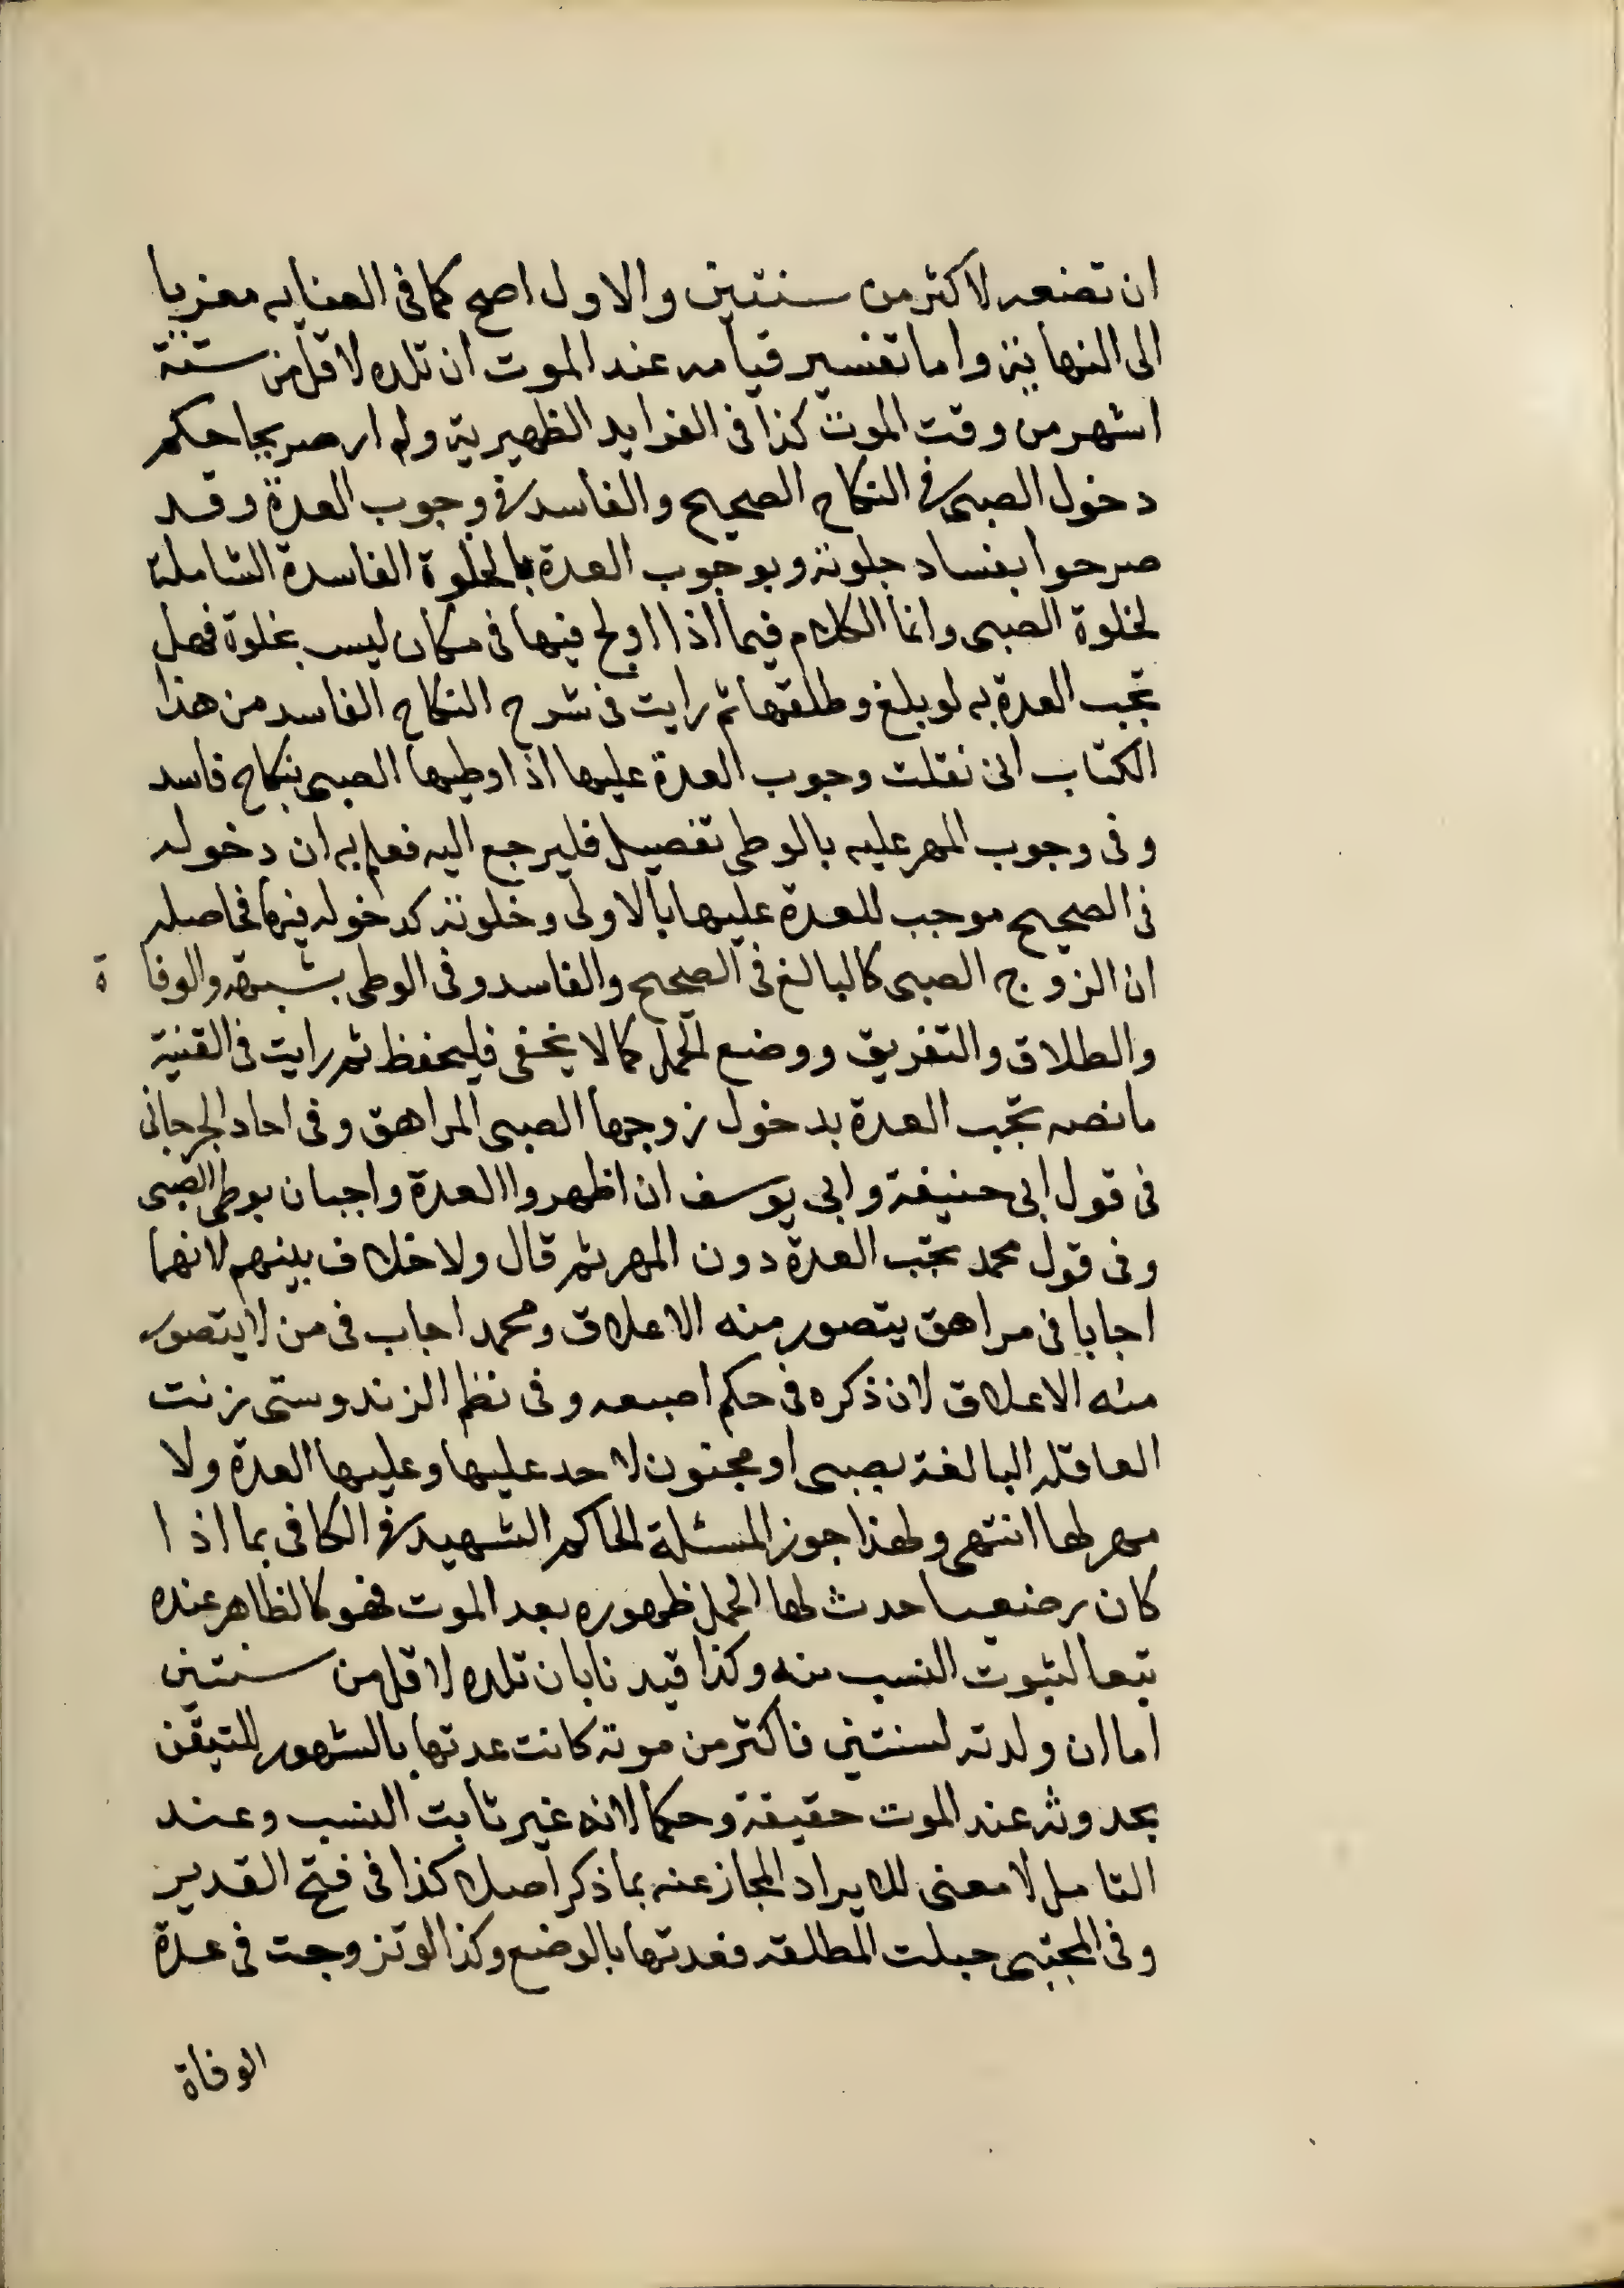 ان تضعه لاكثر من سنتين والاول اصح كما فى العنايه معزيا
الى النهاية واما تفسير قيامه عند الموت ان تلده لاقل من ستة
اشهر من وقت الموت كذا فى الفوايد الظهيرية ولم ار صريحا حكم
دخول الصبى فى النكاح الصحيح والفاسد فى وجوب العدة وقد
صرحوا بفساد خلوته وبوجوب العدة بالخلوة الفاسدة الشاملة
لخلوة الصبى وانما الكلام فيما اذا اولج فيها فى مكان ليس بخلوة فهل
تجب العدة به لو بلغ وطلقها ثم رايت فى شرح النكاح الفاسد من هذا
الكتاب انى نقلت وجوب العدة عليها اذا وطيها الصبى بنكاح فاسد
وفى وجوب المهر عليه بالوطى تفصيل فليرجع اليه فعلم به ان دخوله
فى الصحيح موجب للعدة عليها بالاولى وخلوته كدخوله فيها فحاصله
ان الزوج الصبى كالبالغ فى الصحيح والفاسد وفى الوطى بشبهة والوفاة
والطلاق والتفريق ووضع الحمل كما لا يخفى فليحفظ ثم رايت فى القنية
ما نصه تجب العدة بدخول زوجها الصبى المراهق وفى احاد الجرجانى
فى قول ابى حنيفة وابى يوسف ان اظهروا العدة واجبان بوطى الصبى
وفى قول محمد تجب العدة دون المهر ثم قال ولا خلاف بينهم لانهما
اجابا فى مراهق يتصور منه الاعلاق ومحمد اجاب فى من لا يتصور
منه الاعلاق لان ذكره فى حكم اصبعه وفى نظم الزندوستى زنت
العاقلة البالغة بصبى او مجنون لا حد عليها وعليها العدة ولا
مهر لها انتهى ولهذا جوز المسئلة الحاكم الشهيد فى الكافى بما اذا
كان رضيعا حدث لها الحمل ظهوره بعد الموت فهو كالظاهر عنده
تبعا لثبوت النسب منه وكذا قيدنا بان تلده لاقل من سنتين
اما ان ولدته لسنتين فاكثر من موته كانت عدتها بالشهور للتيقن
بحدوثه عند الموت حقيقة وحكما لانه غير ثابت النسب وعند
التامل لا معنى للايراد المجاز عنه بما ذكر اصلا كذا فى فتح القدير
وفى المجتبى حبلت المطلقة فعدتها بالوضع وكذا لو تزوجت فى عدة
الوفاة